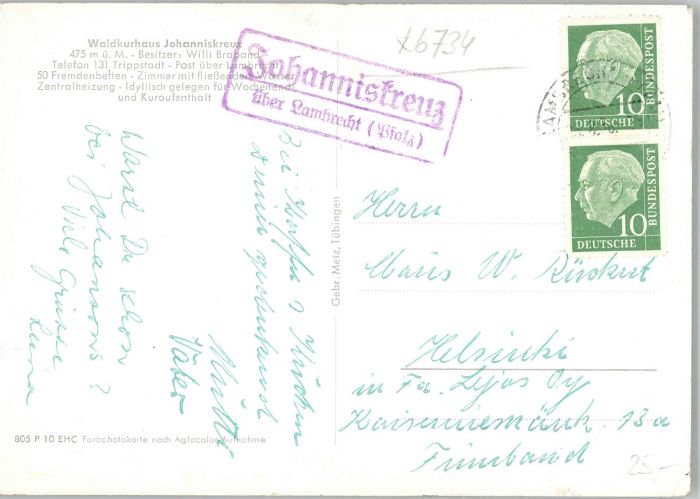 Waldkurhaus Johanniskreuz
475 m ü. M. - Besitzer: Willi Braband
Telefon 131 Trippstadt - Post über Lambrecht
50 Fremdenbetten - Zimmer mit fließendem Wasser
Zentralheizung - Idyllisch gelegen für Wochenend-
und Kuraufenthalt
Johanniskreuz
über Lambrecht (Pfalz)
x6734
10
DEUTSCHE
BUNDESPOST
10
DEUTSCHE
BUNDESPOST
Bei Kaffee & Kuchen
Deiner gedenkend
Mutti
Vater
Warst Du schon
bei Johansons?
Viele Grüsse
Gebr. Metz, Tübingen
Herrn
W. Rückert
Helsinki
in Fa. Lejos Oy
13a
Finnland
805 P 10 EHC Farbphotokarte nach Agfacolor-Aufnahme
25.-